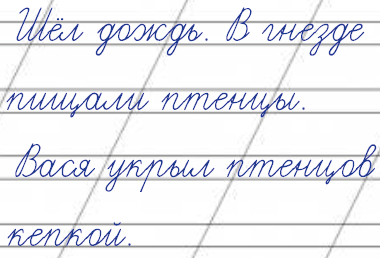 Шёл дождь. В гнезде
пищали птенцы.
Вася укрыл птенцов
кепкой.